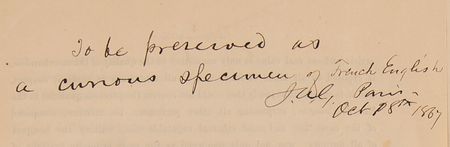 To be preserved as
a curious specimen of French English
J.A.G. Paris
Oct 28th 1867